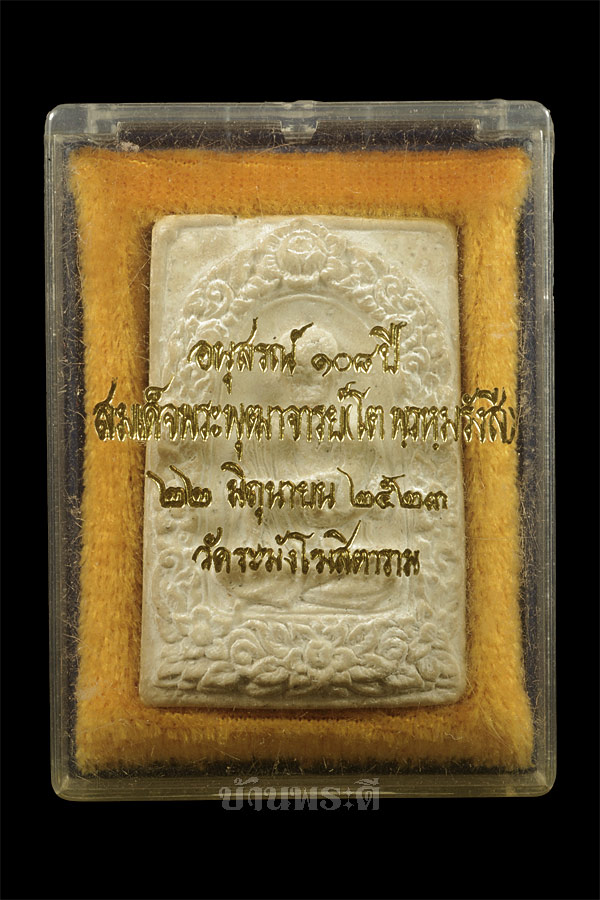 อนุสรณ์ ๑๐๘ ปี
สมเด็จพระพุฒาจารย์(โต พฺรหฺมรังสี)
๒๒ มิถุนายน ๒๕๒๓
วัดระฆังโฆสิตาราม
บ้านพระดี